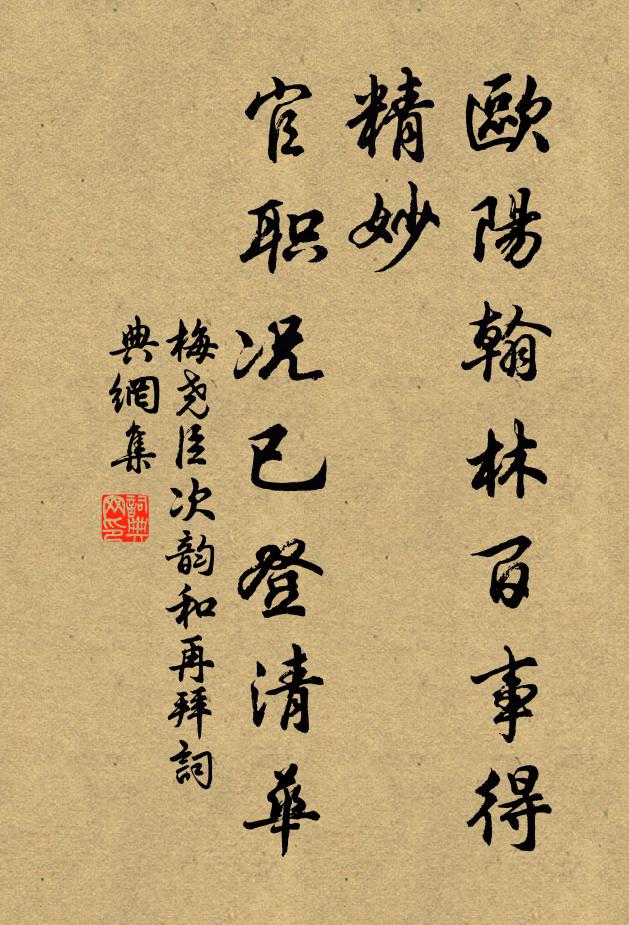 歐陽翰林百事得
精妙
官职况已登清華
梅尧臣次韵和再拜詞
典網集
詞典
网印